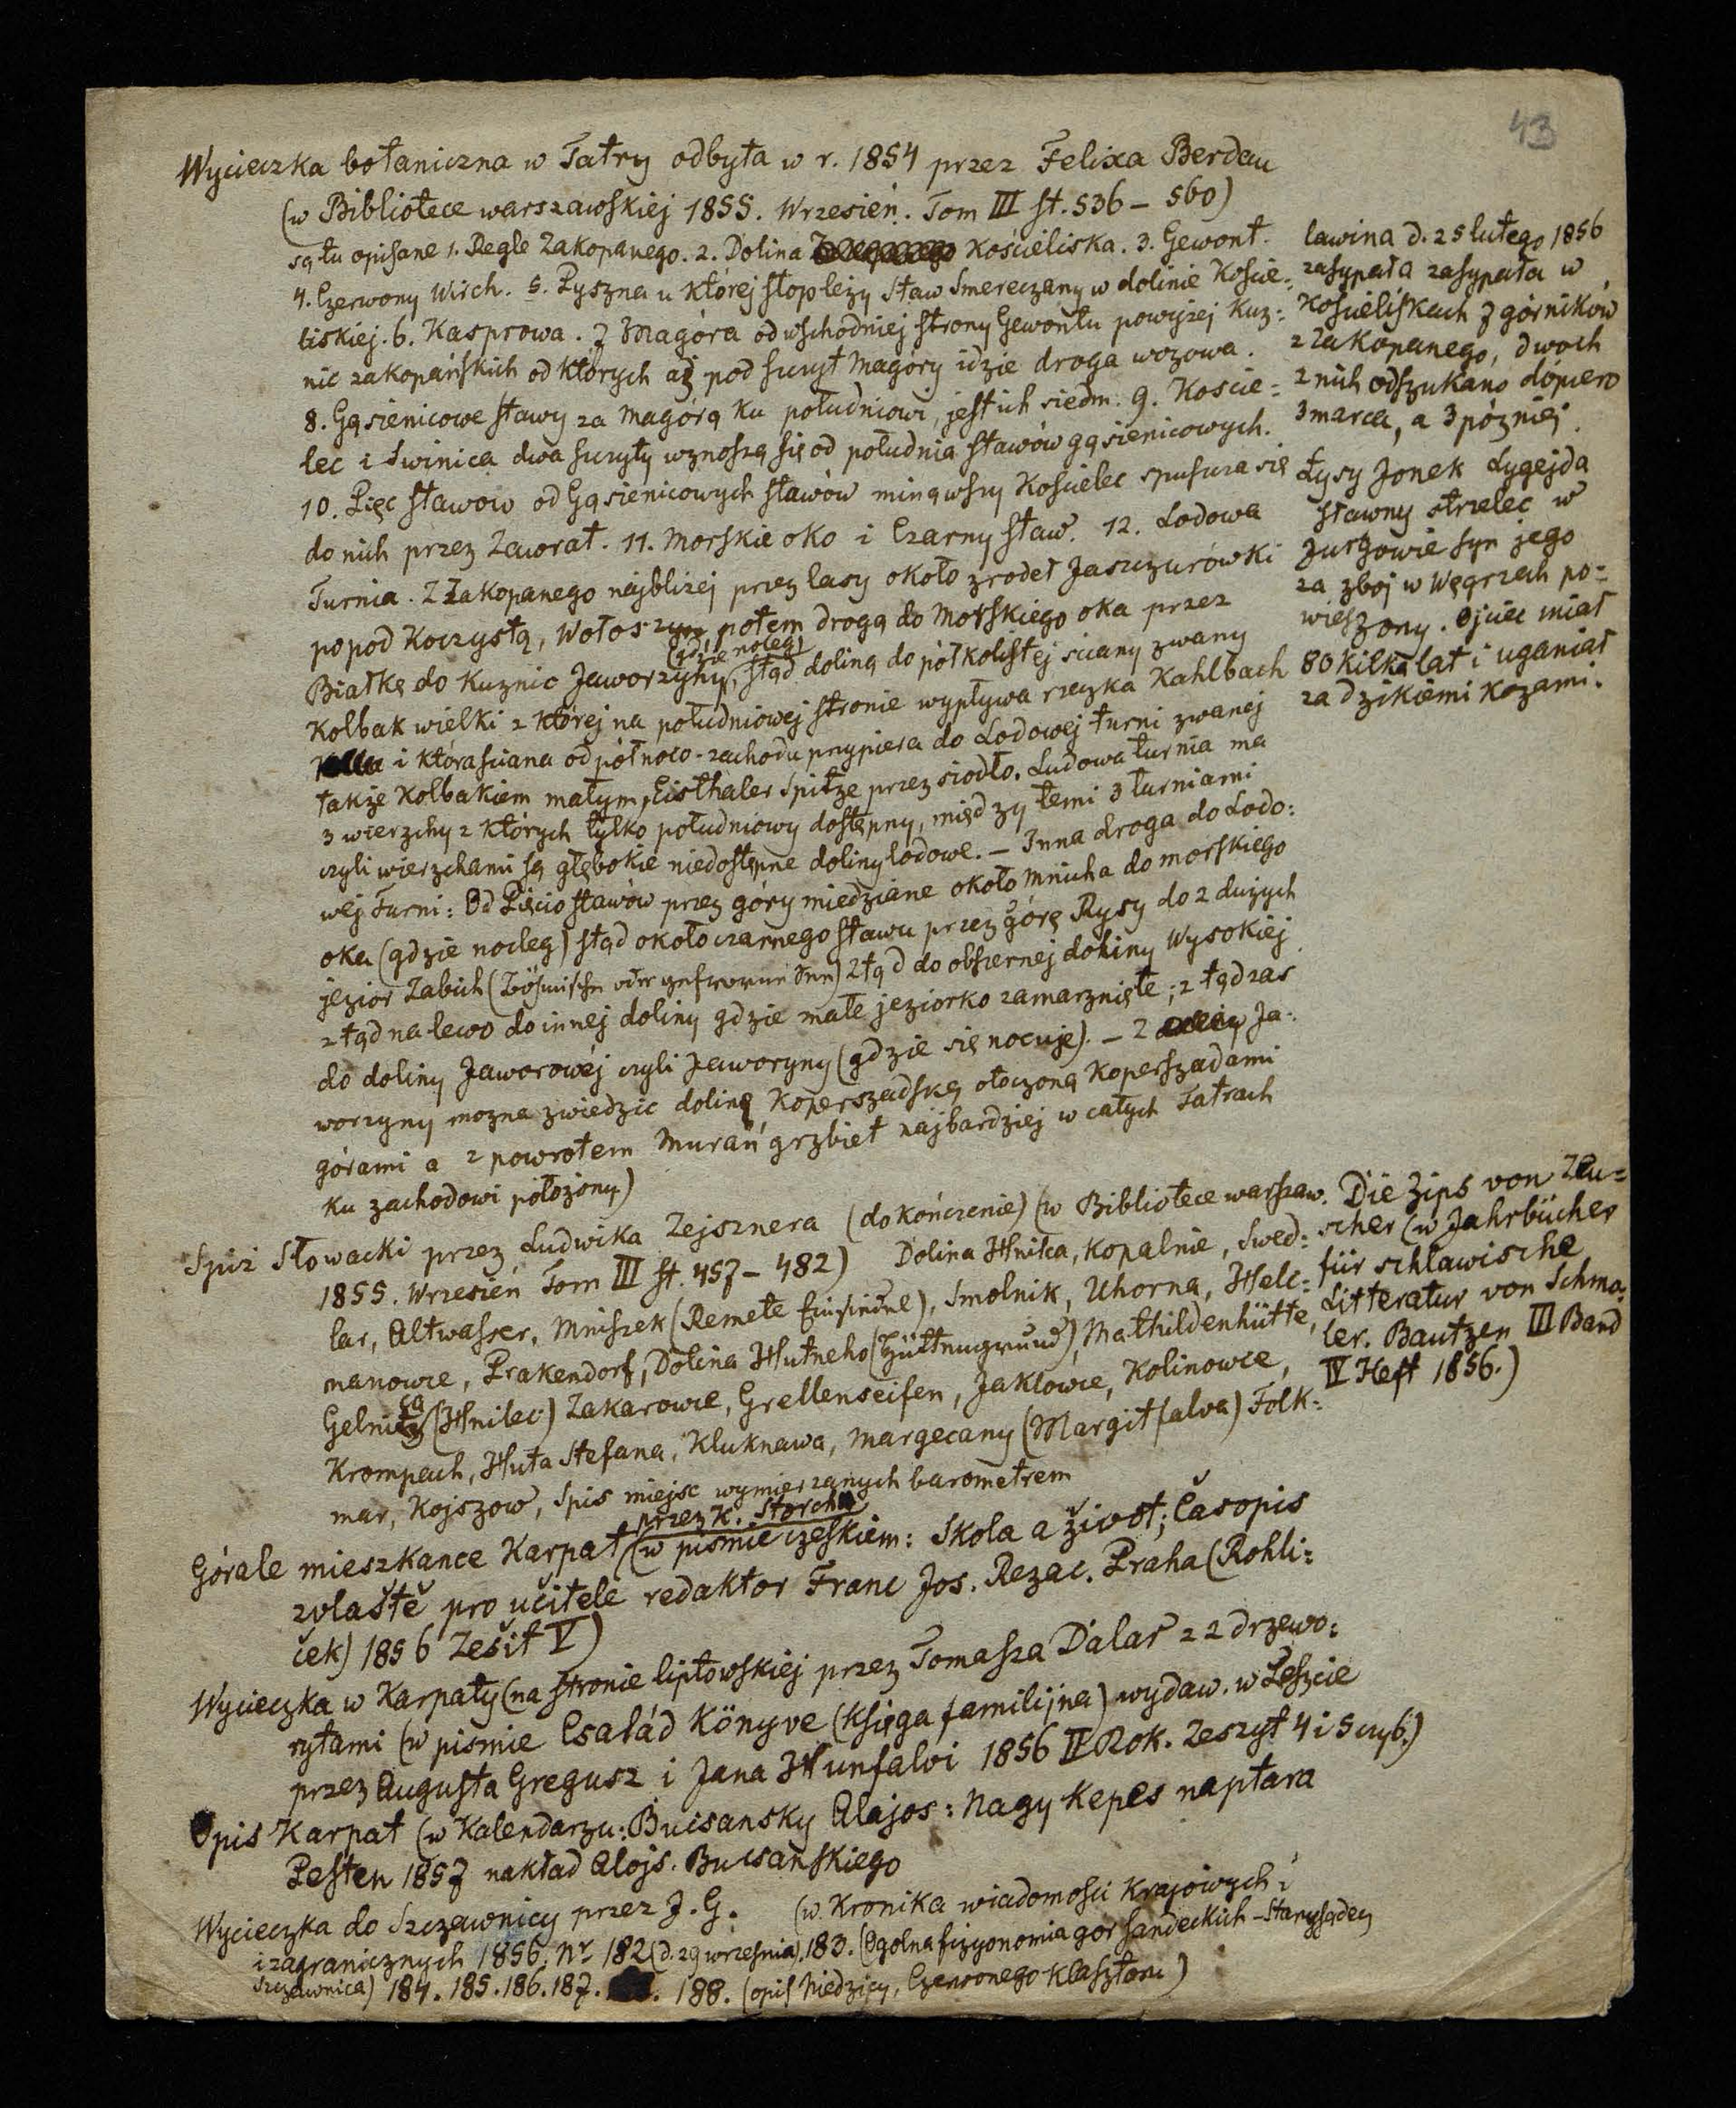 43
Wycieczka botaniczna w Tatry odbyta w r. 1854 przez Felixa Berdau
(w Bibliotece warszawskiej 1855. Wrzesień. Tom III st. 536 – 560)
są tu opisane 1. Regle Zakopanego. 2. Dolina Kościeliska. 3. Gewont.
4. Czerwony Wirch. 5. Pyszna u której stop leży staw Smereczany w dolinie Koście=
liskiej. 6. Kasprowa. 7 Magóra od wschodniej strony Gewontu powyżej Kuz=
nic zakopańskich od których aż pod szczyt Magóry idzie droga wozowa.
8. Gąsienicowe stawy za Magórą ku południowi, jest ich siedm. 9. Koscie=
lec i Swinica dwa szczyty wznoszą się od południa stawów gąsienicowych.
10. Pięc stawow od Gąsienicowych stawów minąwszy Kościelec spuszcza się
do nich przez Zawrat. 11. Morskie oko i Czarny staw. 12. Lodowa
Turnia. Z Zakopanego najbliżej przez lasy około zrodeł Jaszczurówki
popod Koczystą, Wołoszyn, potem drogą do Morskiego oka przez
(gdzie nocleg)
Białkę do Kuznic Jaworzyny, stąd doliną do półkolistej sciany zwany
Kolbak wielki z której na południowej stronie wypływa rzeczka Kahlbach
i która sciana od północo-zachodu przypiera do Lodowej turni zwanej
także Kolbakiem małym, Eisthaler Spitze przez siodło. Ludowa turnia ma
3 wierzchy z których tylko południowy dostępny, między temi 3 turniami
czyli wierzchami są głębokie niedostępne doliny lodowe. – Inna droga do Lodo=
wej Turni: Od Pięciostawów przez góry miedziane około Mnicha do morskiego
oka (gdzie nocleg) stąd około czarnego stawu przez górę Rysy do 2 dużych
jezior Zabich (Böhmische oder gefrorene Seen) ztąd do obszernej doliny Wysokiej
ztąd na lewo do innej doliny gdzie małe jeziorko zamarznięte; ztąd zas
do doliny Jaworowéj czyli Jaworyny (gdzie się nocuje). – Z Ja=
worzyny mozna zwiedzic dolinę Koperszadską otoczoną Koperszadami
górami a z powrotem Murań grzbiet najbardziej w całych Tatrach
ku zachodowi położony)
lawina d. 25 lutego 1856
zasypała zasypała w
Kościeliskach 7 górników
z Zakopanego, dwoch
z nich odszukano dopiero
3 marca, a 3 później.
Łysy Jonek Lygejda
sławny strzelec w
Jurgowie syn jego
za zboj w Węgrzech po=
wieszony. Ojciec miał
80 kilka lat i uganiał
za dzikiemi kozami.
Spiz Słowacki przez Ludwika Zejsznera (dokończenie) (w Bibliotece warszaw.
1855. Wrzesień Tom III st. 457 – 482) Dolina Hnilca, Kopalnie, Swed=
lar, Altwasser, Mniszek (Remete Einsiedl), Smolnik, Uhorna, Helc=
manowce, Prakendorf, Dolina Hutneho (Hüttengrund), Mathildenhütte,
ca
Gelnitz (Hnilec) Zakarowce, Grellenseifen, Jaklowce, Kolinowce,
Krompach, Huta Stefana, Kluknawa, Margecany (Margitfalva) Folk=
mar, Kojszow, Spis miejsc wymierzanych barometrem
Die Zips von Zeu=
scher (w Jahrbücher
für schlawische
Litteratur von Schma=
ler. Bautzen III Band
IV Heft 1856.)
przez K. Storcha
Górale mieszkance Karpat (w pismie czeskiem: Skola a život; Časopis
zvlaště pro učitele redaktor Franc Jos. Rezac. Praha (Rohli=
ček) 1856 Zešit V)
Wycieczka w Karpaty (na stronie liptowskiej przez Tomasza Dalaś z 2 drzewo=
rytami (w pismie Család Könyve (Księga familijna) wydaw. w Peszcie
przez Augusta Gregusz i Jana Hunfalvi 1856 II Rok. Zeszyt 4 i 5 czy 6.)
Opis Karpat (w Kalendarzu: Bucsansky Alajos: Nagy Kepes naptara
Pesten 1857 nakład Alojs. Bucsańskiego
Wycieczka do Szczawnicy przez J. G. (w Kronika wiadomości Krajowych i
i zagranicznych 1856. Nr 182 (d. 29 wrzesnia). 183. (Ogolna fizyonomia gor sandeckich – Stary sądecz
szczawnica) 184. 185. 186. 187. 188. (opis Niedzicy, Czerwonego Klasztoru)